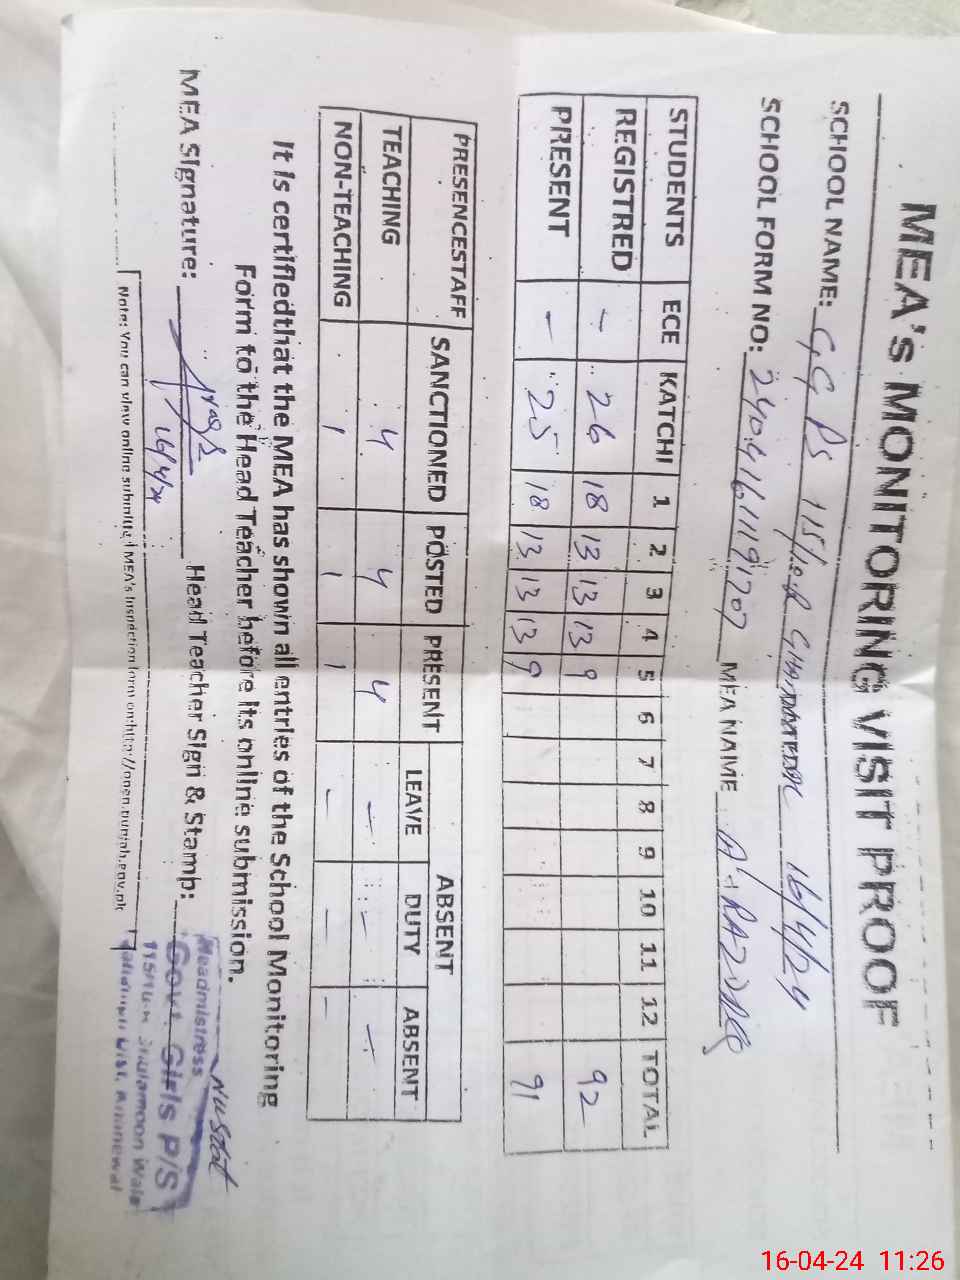 MEA's MONITORING VISIT PROOF
SCHOOL NAME: GGPS 115/10R 16/4/24
SCHOOL FORM NO: MEA NAME
STUDENTS ECE KATCHI 1 2 3 4 5 6 7 8 9 10 11 12 TOTAL
REGISTRED - 26 18 13 13 13 9 92
PRESENT - 25 18 13 13 13 9 91
PRESENCESTAFF SANCTIONED POSTED PRESENT ABSENT
LEAVE DUTY ABSENT
TEACHING 4 4 4 - - -
NON-TEACHING 1 1 1 - - -
It is certifiedthat the MEA has shown all entries of the School Monitoring
Form to the Head Teacher before its online submission.
MEA Signature: Head Teacher Sign & Stamp:
16/4/24
Headmistress
Govt. Girls P/S
Note: You can view online submitted MEA's Inspection form on:http://open.punjab.gov.pk
16-04-24 11:26